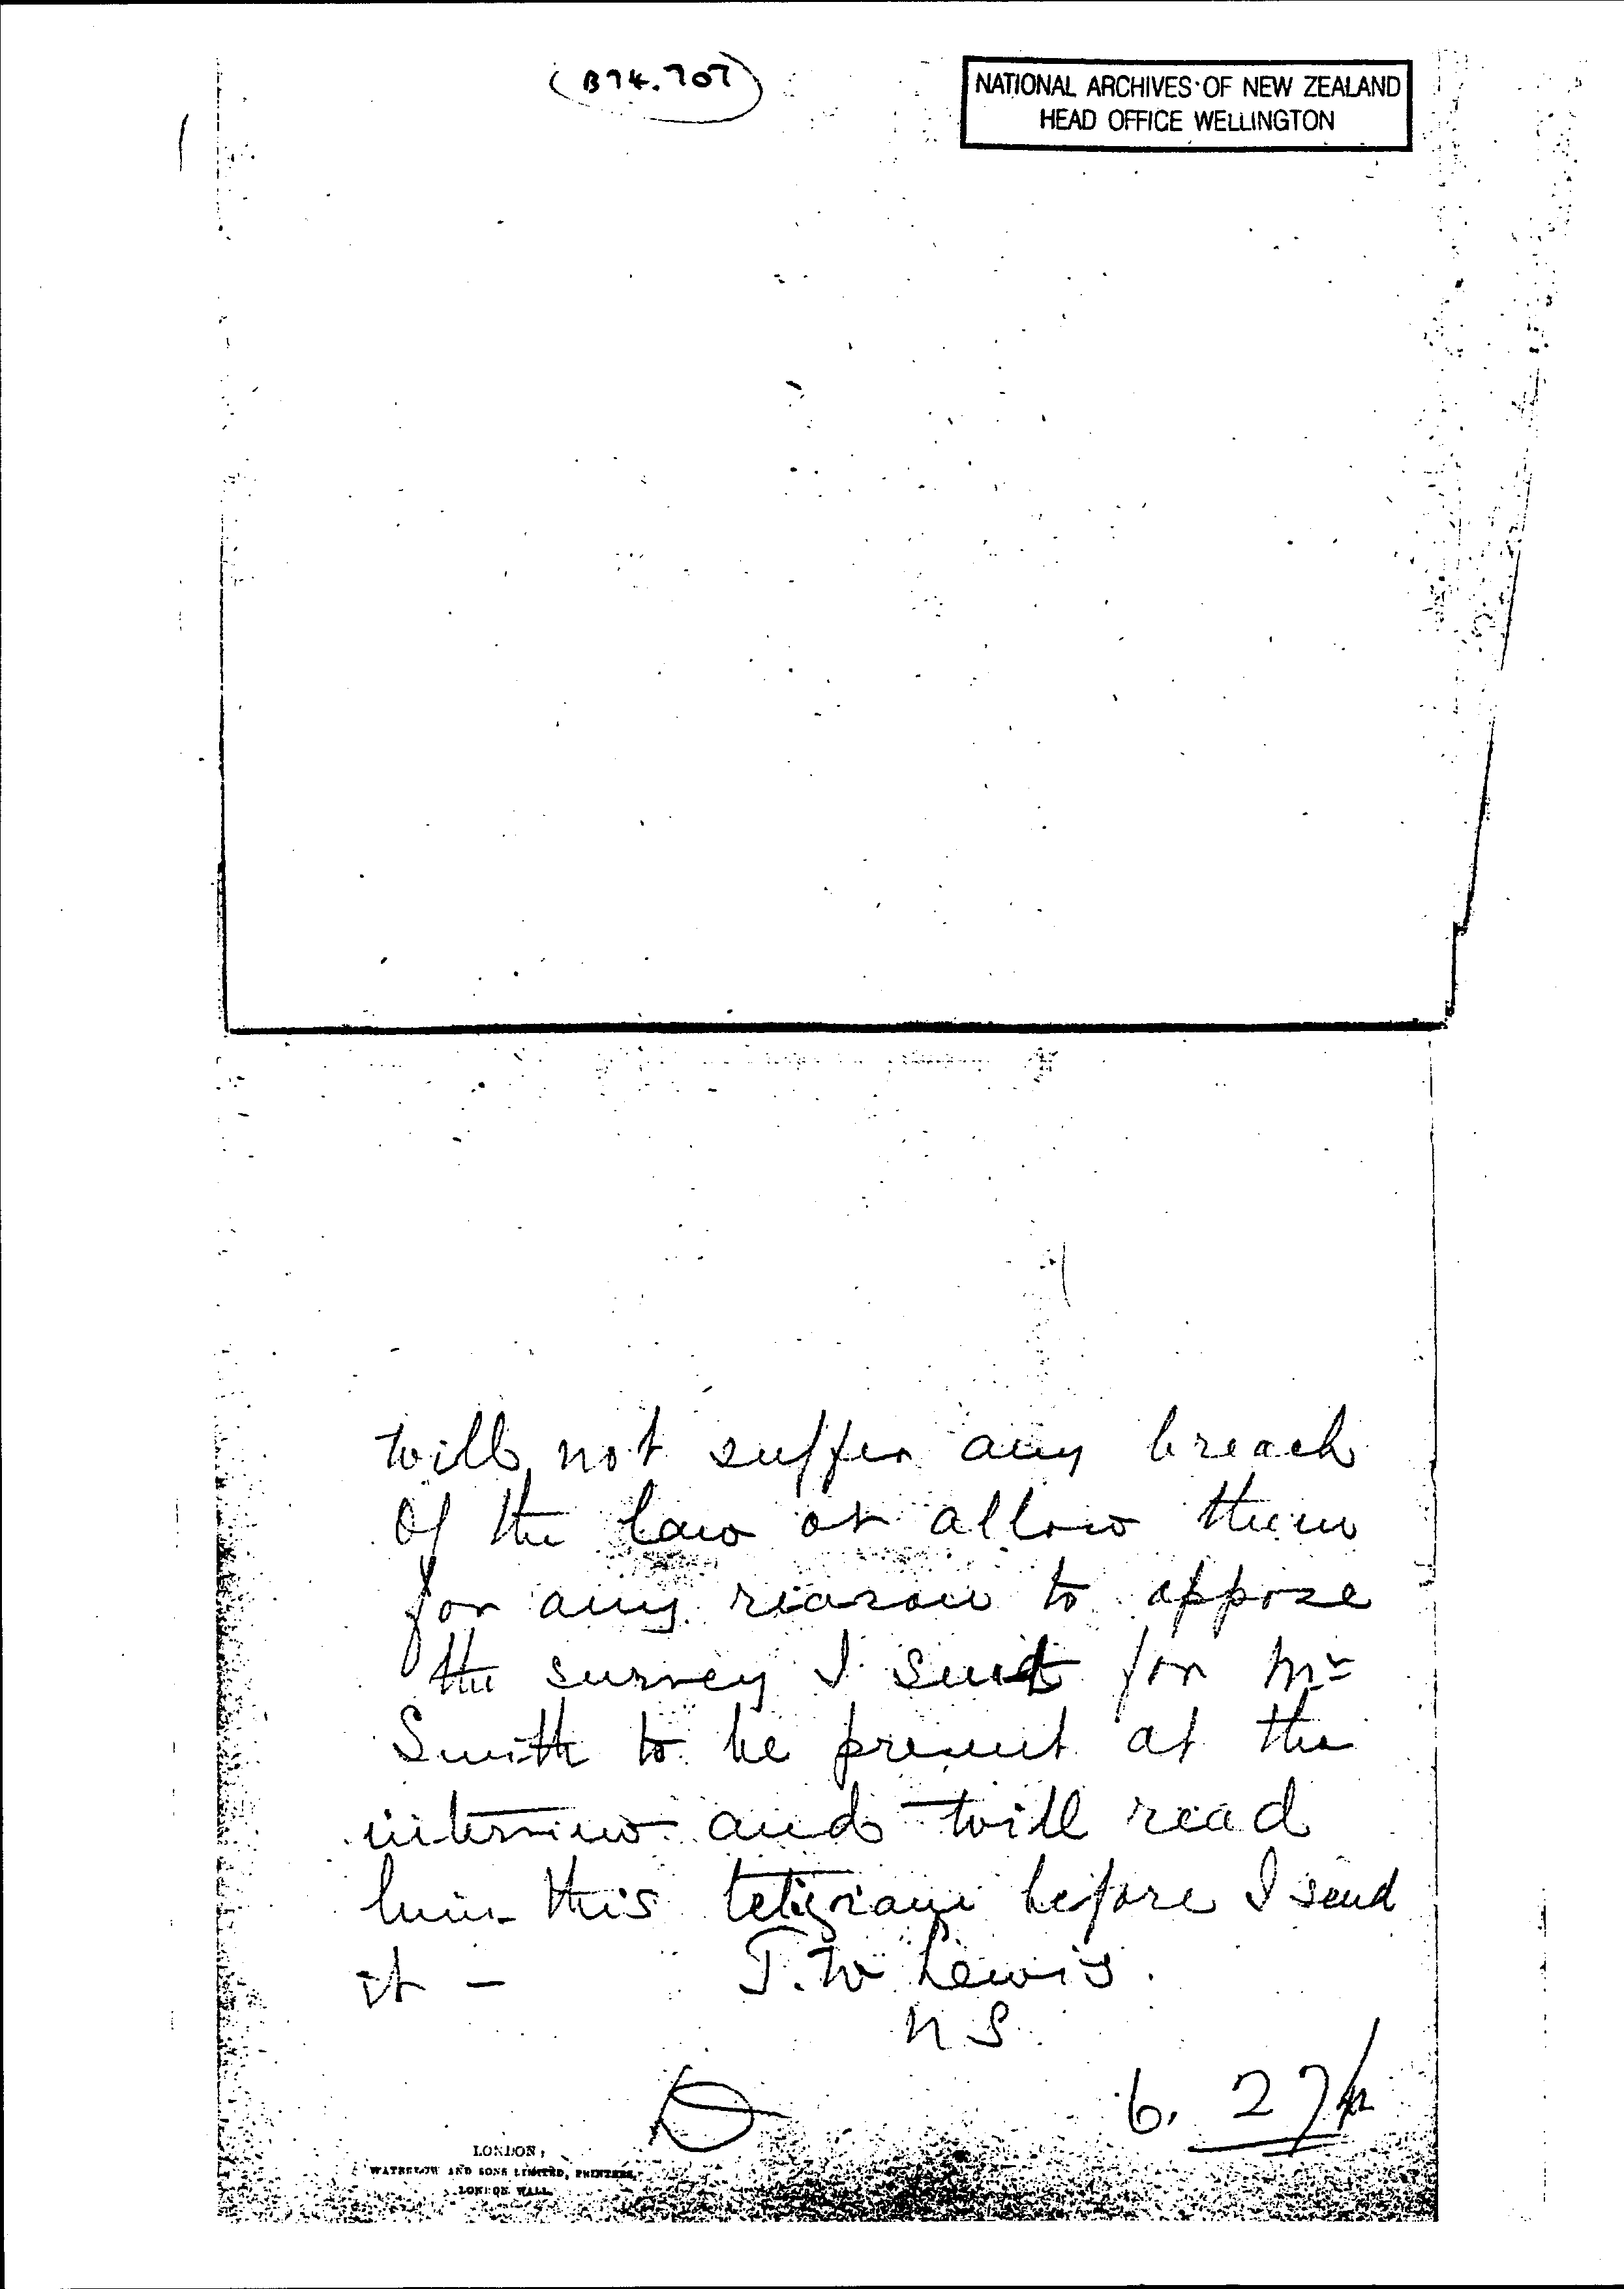 (B74.707)
NATIONAL ARCHIVES OF NEW ZEALAND
HEAD OFFICE WELLINGTON
will not suffer any breach
of the law or allow them
for any reason to oppose
the survey I send for Mr
Smith to be present at the
interview and will read
him this telegram before I send
it -
T. W Lewis.
N S
6. 27
LONDON,
WATERLOW AND SONS LIMITED, PRINTERS,
LONDON WALL